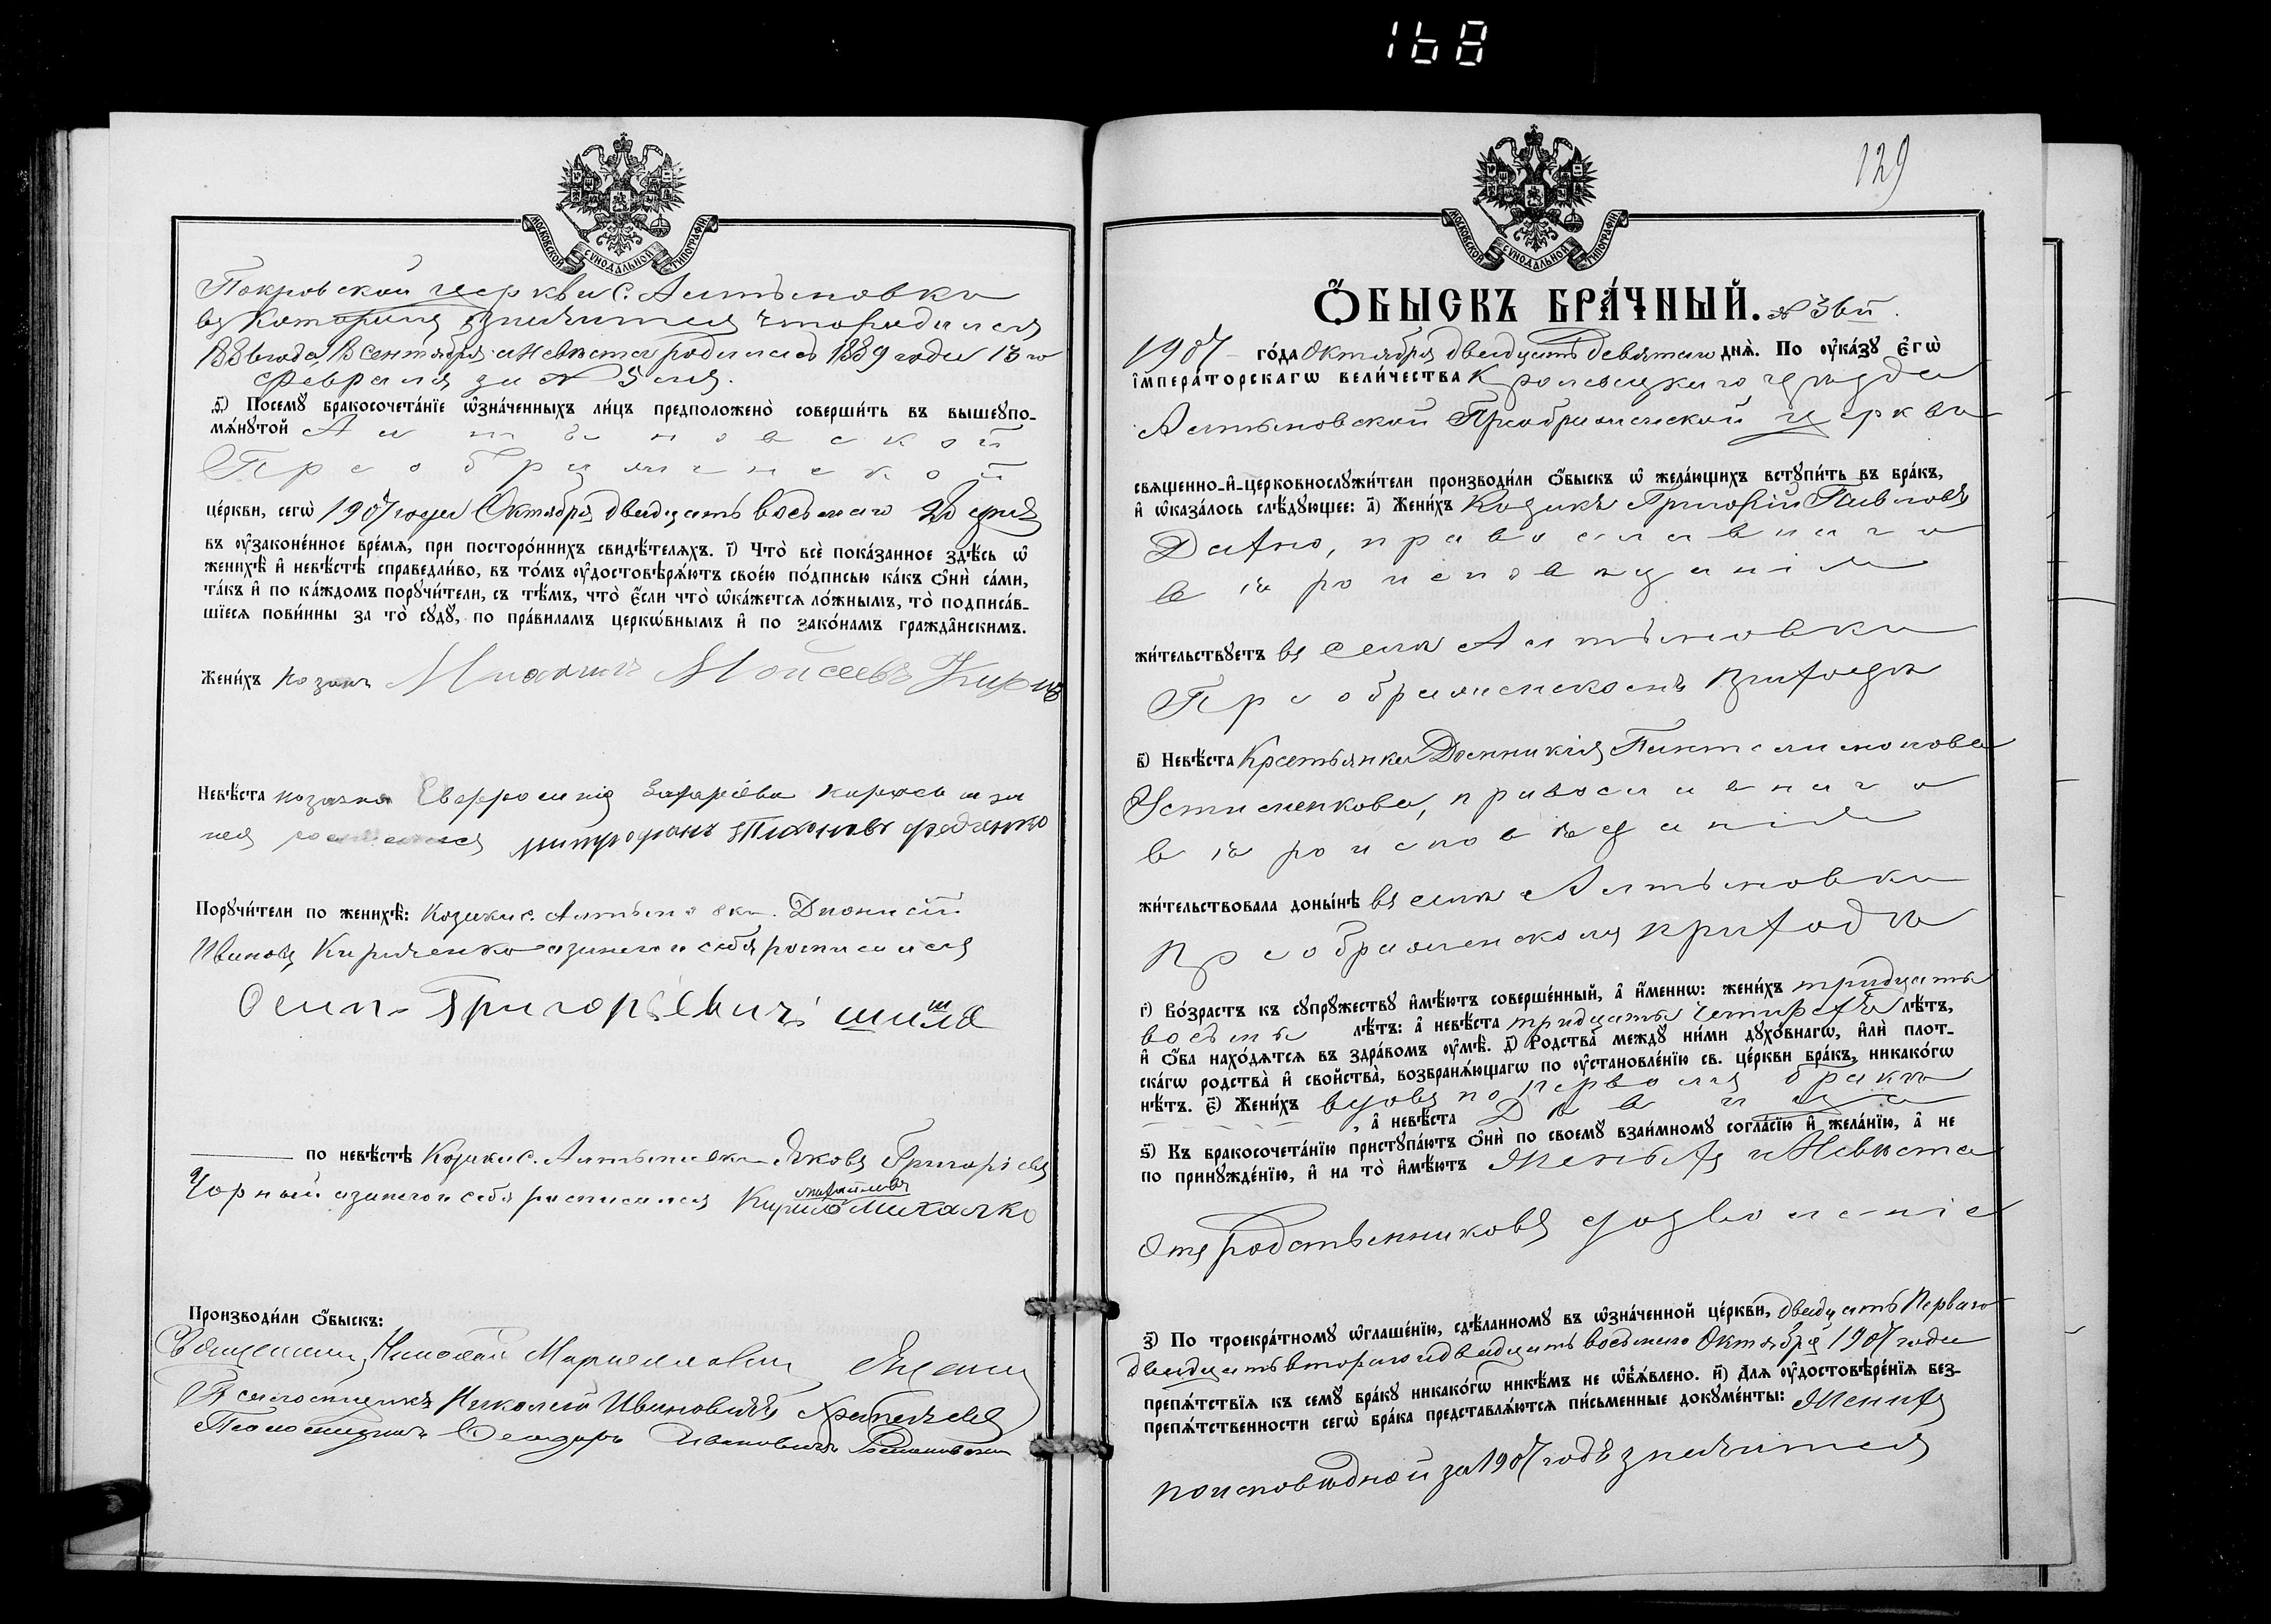 168
МОСКОВСКОЙ СѴНОДАЛЬНОЙ ТИПОГРАФІИ
Покровской церкви с. Алтыновки
въ которыхъ значится что родился
1886 года, 18 Сентября а невѣста родилась 1889 года 13 го
Февраля за № 5 мъ.
Посему бракосочетаніе означенныхъ лицъ предположено совершить въ вышеупо-
мянутой Алтыновской
Преображенской
церкви, сего 1907 года Октября двадцать восьмаго 28 дня
въ узаконенное время, при постороннихъ свидѣтеляхъ. і) Что все показанное здѣсь о
женихѣ и невѣстѣ справедливо, въ томъ удостовѣряютъ своею подписью какъ они сами,
такъ и по каждомъ поручители, съ тѣмъ, что если что окажется ложнымъ, то подписав-
шіеся повинны за то суду, по правиламъ церковнымъ и по законамъ гражданскимъ.
Женихъ козакъ Моисеевъ
Невѣста козачка Евфросинія Захаріева а за
нея росписался Митрофанъ Тихоновъ Фадченко
Поручители по женихѣ: Козаки с. Алтыновки Діонисій
Ивановъ Кириченко а за него и себя росписался
Осип Григоріевич Шило
по невѣстѣ Козаки с. Алтыновки Яковъ Григоріевъ
Чорный а за него и себя росписался Кирило Михайловъ Михалко
Производили обыскъ:
Священникъ Николай
Псаломщикъ Николай Ивановичъ
Псаломщикъ Ивановичъ
129
МОСКОВСКОЙ СѴНОДАЛЬНОЙ ТИПОГРАФІИ
ОБЫСКЪ БРАЧНЫЙ. № 36й.
1907 года Октября двадцать девятаго дня. По указу Его
Императорскаго Величества Кролевецкаго уѣзда
Алтыновской Преображенской церкви
священно-и-церковнослужители производили обыскъ о желающихъ вступить въ бракъ,
и оказалось слѣдующее: а) Женихъ Козакъ Григорій Павловъ
Дахно, православнаго
вѣроисповѣданія
жительствуетъ въ селѣ Алтыновкѣ
Преображенскомъ приходѣ
в) Невѣста Крестьянка Домникія Пантелимонова
Устименкова, православнаго
вѣроисповѣданія
жительствовала донынѣ въ селѣ Алтыновкѣ
Преображенскомъ приходѣ
г) Возрастъ къ супружеству имѣютъ совершенный, а именно: женихъ тридцать
восемь лѣтъ: а невѣста тридцать четырехъ лѣтъ,
и оба находятся въ здравомъ умѣ. д) Родства между ними духовнаго, или плот-
скаго родства и свойства, возбраняющаго по установленію св. церкви бракъ, никакого
нѣтъ. е) Женихъ вдовъ по первомъ бракѣ
, а невѣста Дѣвица
ѕ) Къ бракосочетанію приступаютъ они по своему взаимному согласію и желанію, а не
по принужденію, и на то имѣютъ Женихъ и Невѣста
отъ родственниковъ дозволеніе
з) По троекратному оглашенію, сдѣланному въ означенной церкви, двадцать перваго
двадцать втораго и двадцать восьмаго Октября 1907 года
препятствія къ сему браку никакого никѣмъ не объявлено. и) Для удостовѣренія без-
препятственности сего брака представляются письменные документы: Женихъ
по исповѣдной за 1907 годъ значится